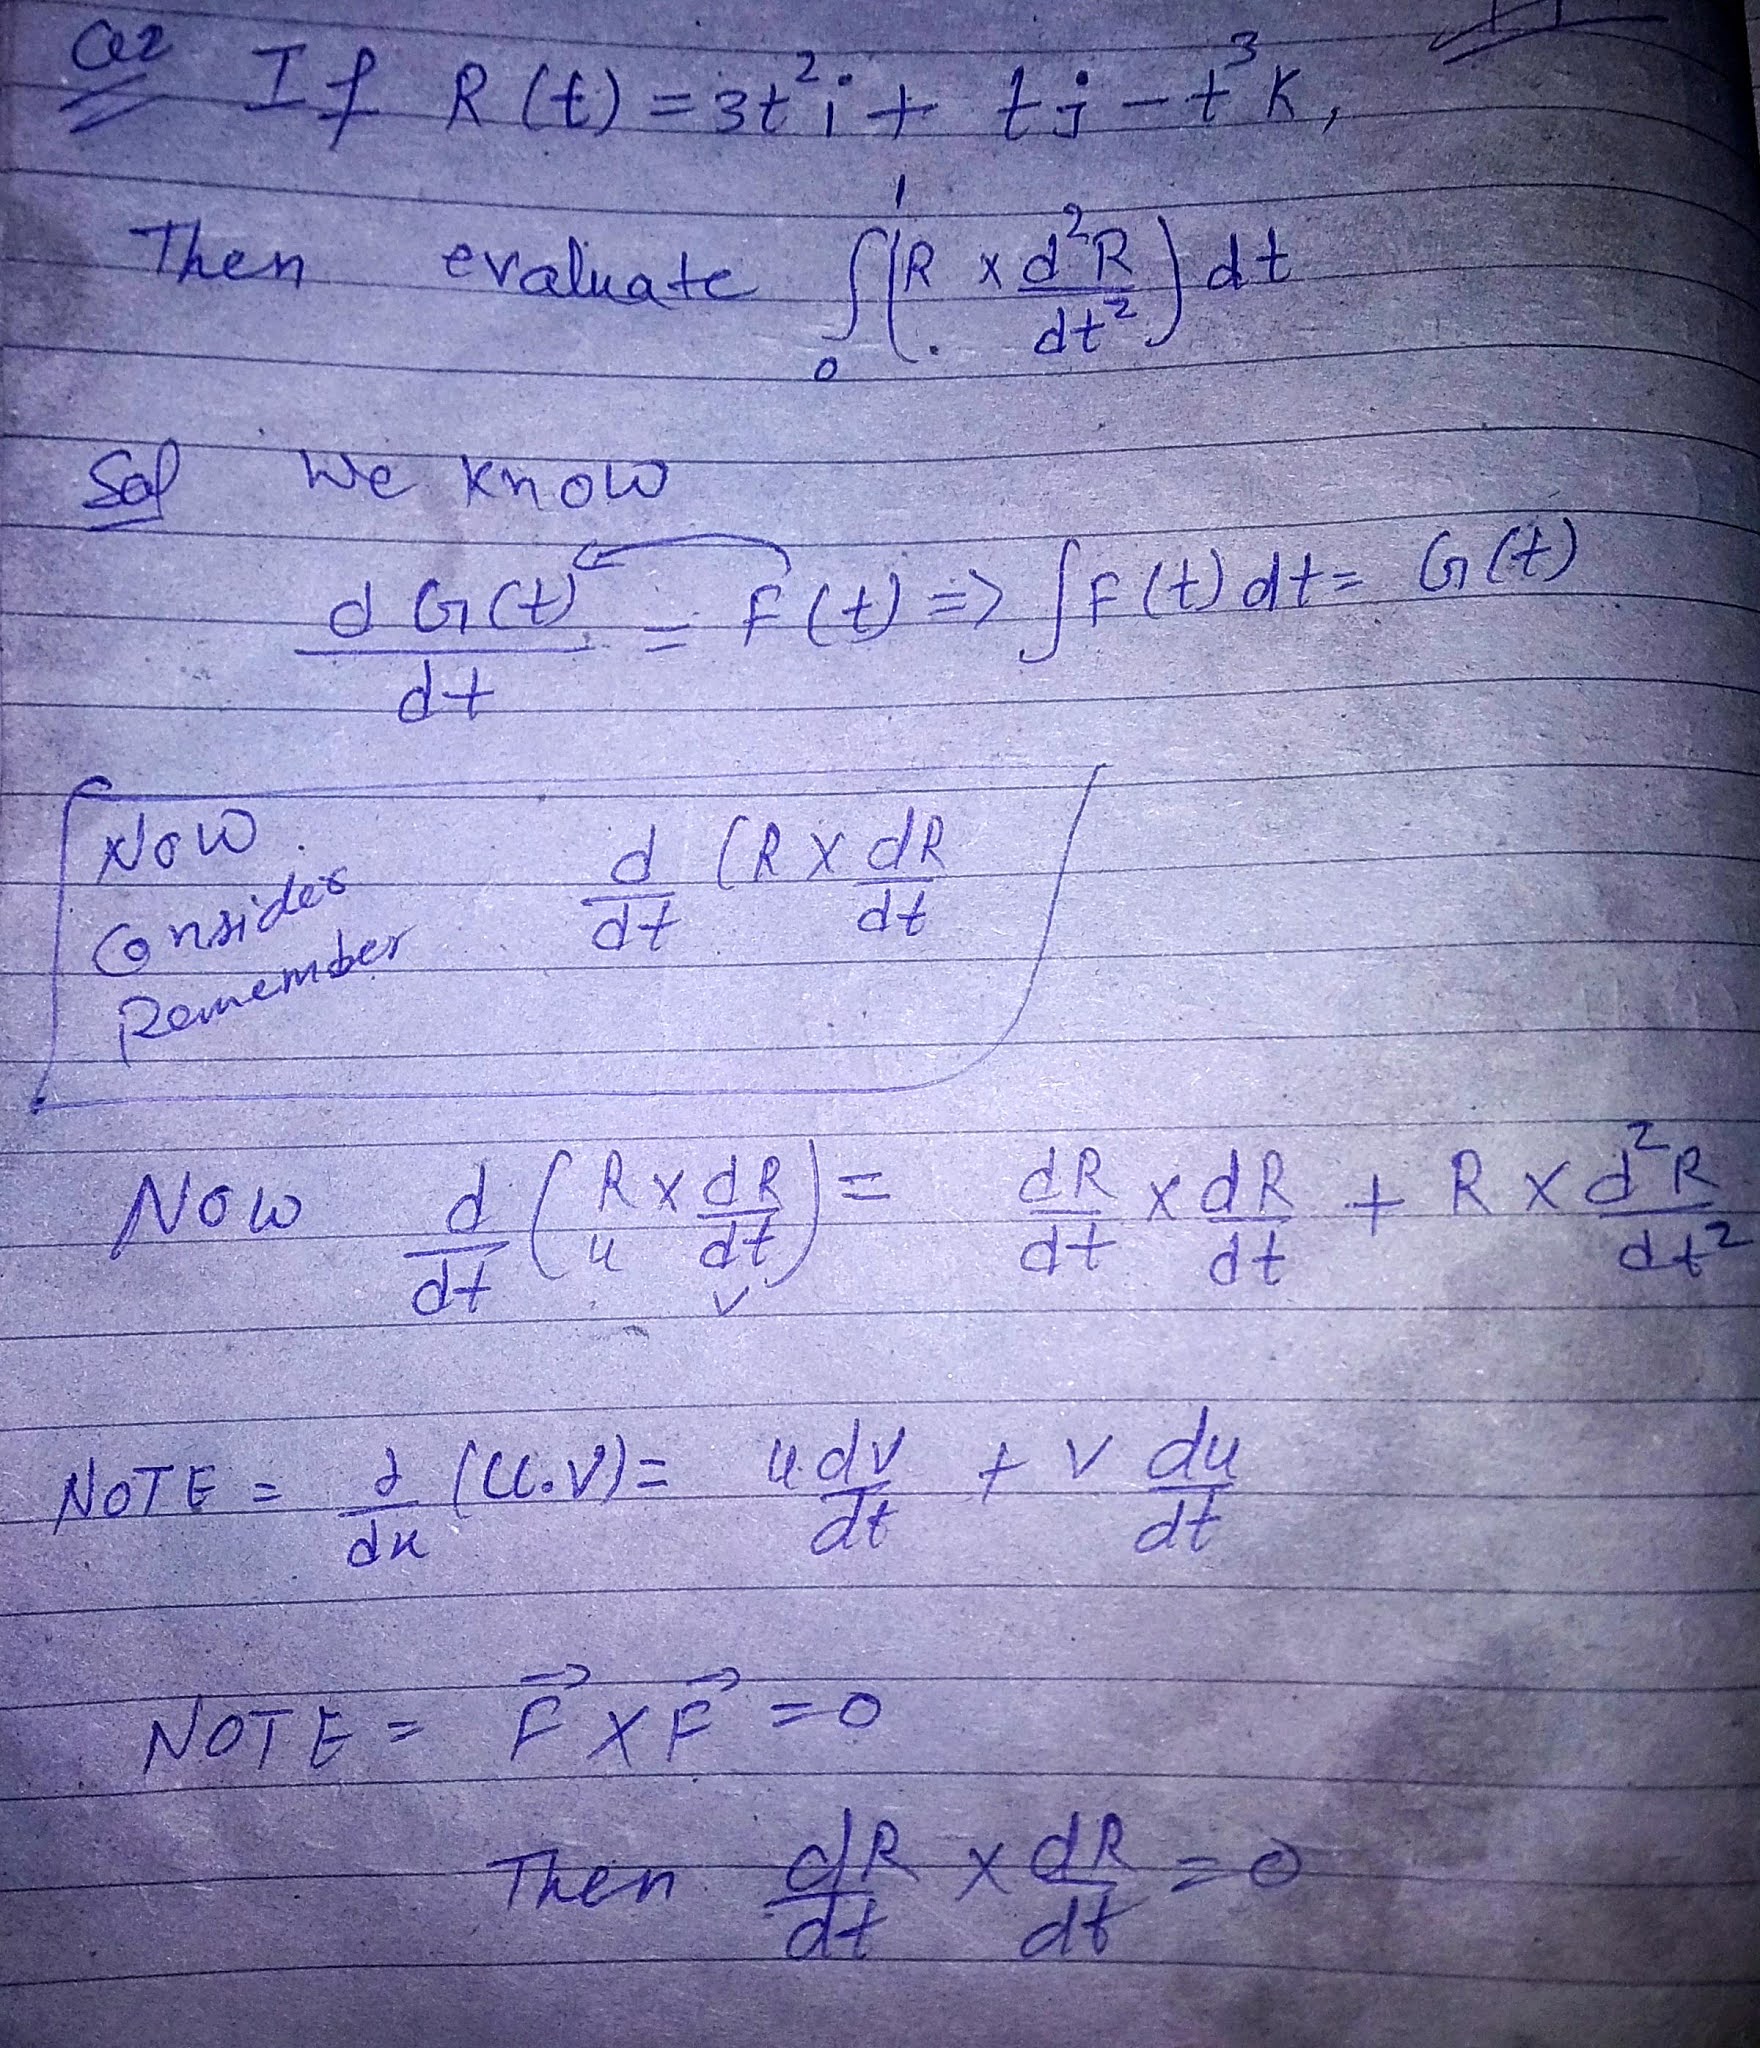 Q2 If R(t) = 3t²i + tj - t³K,
Then evaluate ∫₀¹ (R × d²R/dt²) dt
Sol We know
d G(t)/dt = F(t) => ∫F(t) dt = G(t)
Now Consider Remember d/dt (R × dR/dt
Now d/dt (R × dR/dt) = dR/dt × dR/dt + R × d²R/dt²
u v
NOTE = d/du (u.v) = u.dv/dt + v du/dt
NOTE = F⃗ × F⃗ = 0
Then dR/dt × dR/dt = 0